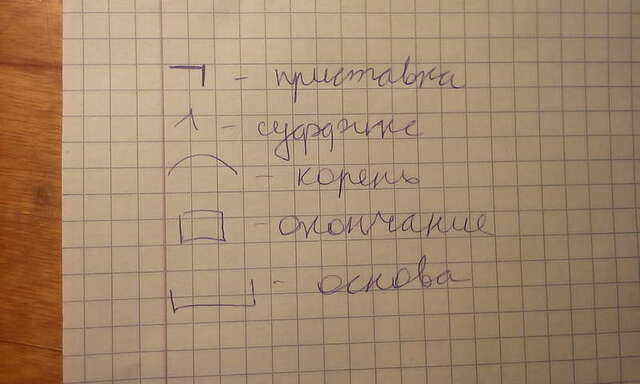 ¬ - приставка
^ - суффикс
⌒ - корень
□ - окончание
⎵ - основа